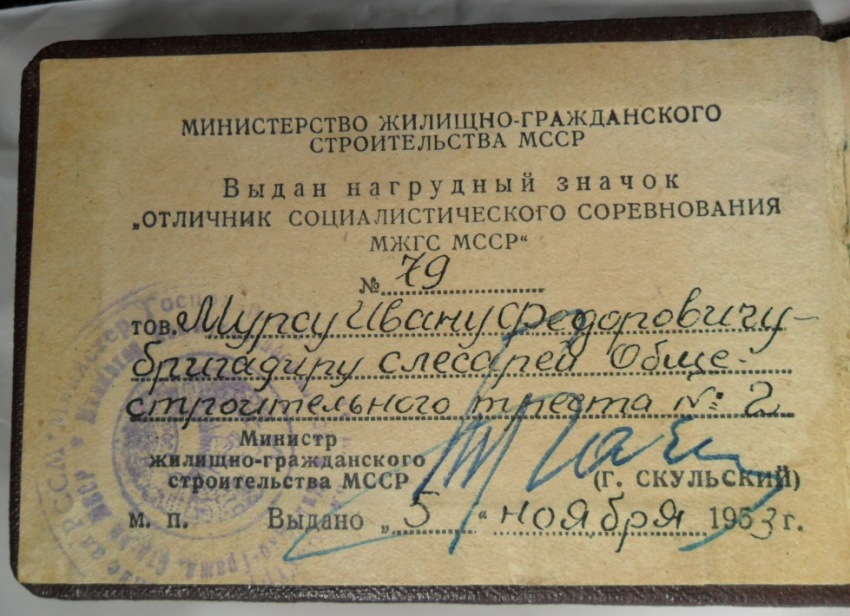 МИНИСТЕРСТВО ЖИЛИЩНО-ГРАЖДАНСКОГО
СТРОИТЕЛЬСТВА МССР
Выдан нагрудный значок
„ОТЛИЧНИК СОЦИАЛИСТИЧЕСКОГО СОРЕВНОВАНИЯ
МЖГС МССР“
№ 79
тов. Мурсу Ивану Федоровичу-
бригадиру слесарей Обще-
строительного треста № 2
Министр
жилищно-гражданского
строительства МССР
(Г. СКУЛЬСКИЙ)
м. п. Выдано „5“ ноября 1953 г.